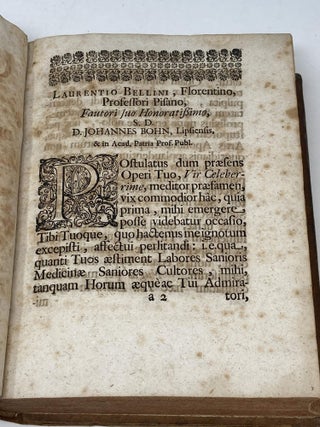 LAURENTIO BELLINI, Florentino,
Professori Pisano,
Fautori suo Honoratissimo,
S. D.
D. JOHANNES BOHN, Lipsiensis,
& in Acad. Patria Prof. Publ.
POstulatus dum præsens
Operi Tuo, Vir Celeber-
rime, meditor præfamen,
vix commodior hac, quia
prima, mihi emergere
posse videbatur occasio,
Tibi Tuoque, quo hactenus me ignotum
excepisti, affectui perlitandi: Eequa,
quanti Tuos æstiment Labores Sanioris
Medicinæ Saniores Cultores, mihi,
tanquam Horum æque ac Tui Admira-
a 2 tori,